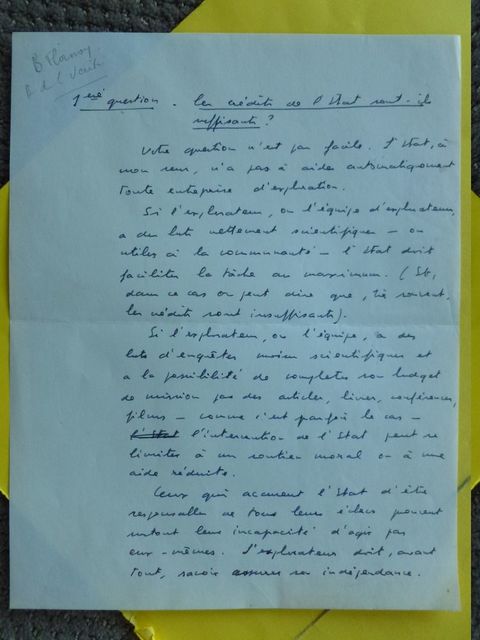 B Flornoy
1ère question. Les crédits de l'Etat sont-ils
suffisants ?
Votre question n'est pas facile. L'Etat, à
mon sens, n'a pas à aider automatiquement
toute entreprise d'exploration.
Si l'explorateur, ou l'équipe d'explorateurs,
a des buts nettement scientifiques - ou
utiles à la communauté - l'Etat doit
faciliter la tâche au maximum. (Et,
dans ce cas on peut dire que, très souvent,
les crédits sont insuffisants).
Si l'explorateur, ou l'équipe, a des
buts d'enquêtes moins scientifiques et
a la possibilité de compléter son budget
de mission par des articles, livres, conférences,
films - comme c'est parfois le cas -
l'Etat l'intervention de l'Etat peut se
limiter à un soutien moral ou à une
aide réduite.
Ceux qui accusent l'Etat d'être
responsable de tous leurs échecs prouvent
surtout leur incapacité d'agir par
eux-mêmes. L'explorateur doit, avant
tout, savoir assurer son indépendance.